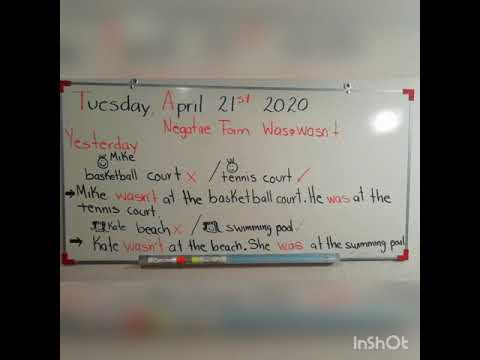 Tuesday, April 21st 2020
Negative Form Was→wasn't
Yesterday
Mike
basketball court x / tennis court ✓
→ Mike wasn't at the basketball court. He was at the
tennis court
Kate beach x / swimming pool
→ Kate wasn't at the beach. She was at the swimming pool
InShOt